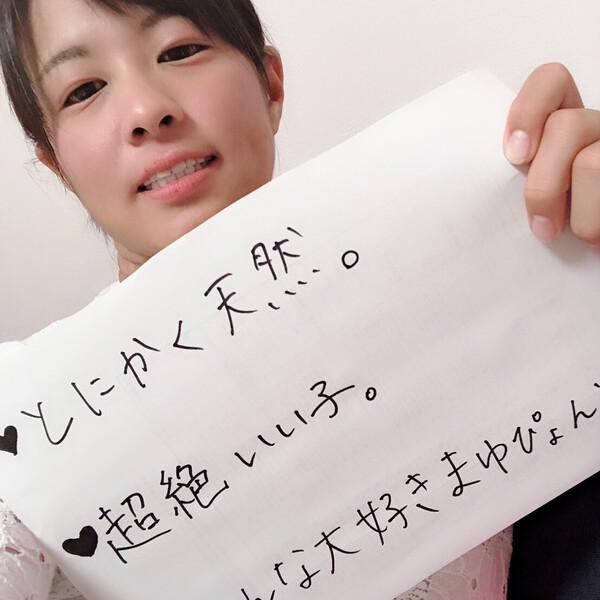 ♥とにかく天然。
♥超絶いい子。
んな大好きまゆぴょん